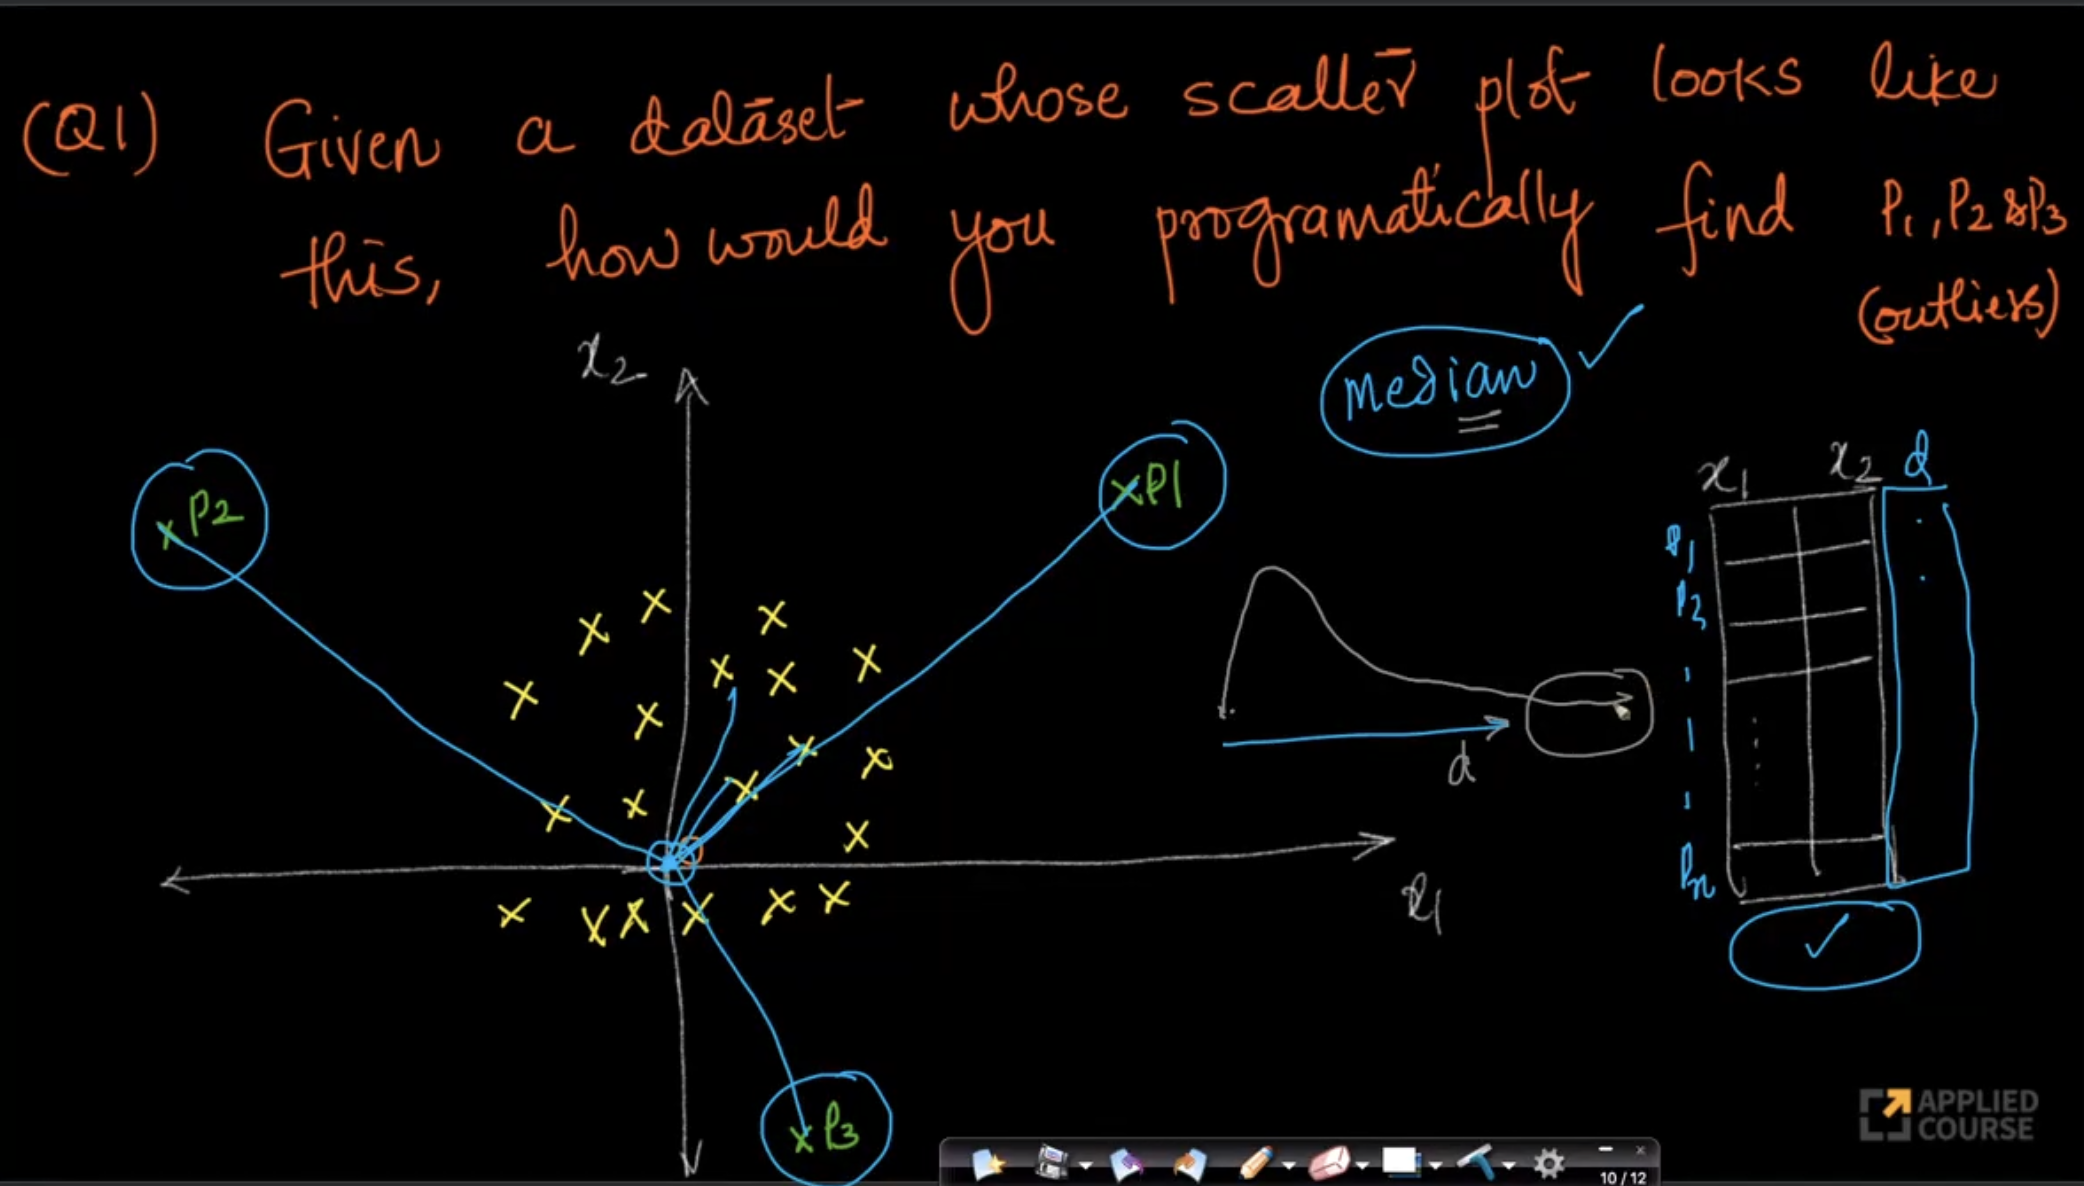 (Q1) Given a dataset whose scatter plot looks like
this, how would you programatically find P1, P2 & P3
(outliers)
x2
Median
P2
P1
x1 x2 d
P1
P2
d
Pn
x1
P3
APPLIED
COURSE
10 / 12